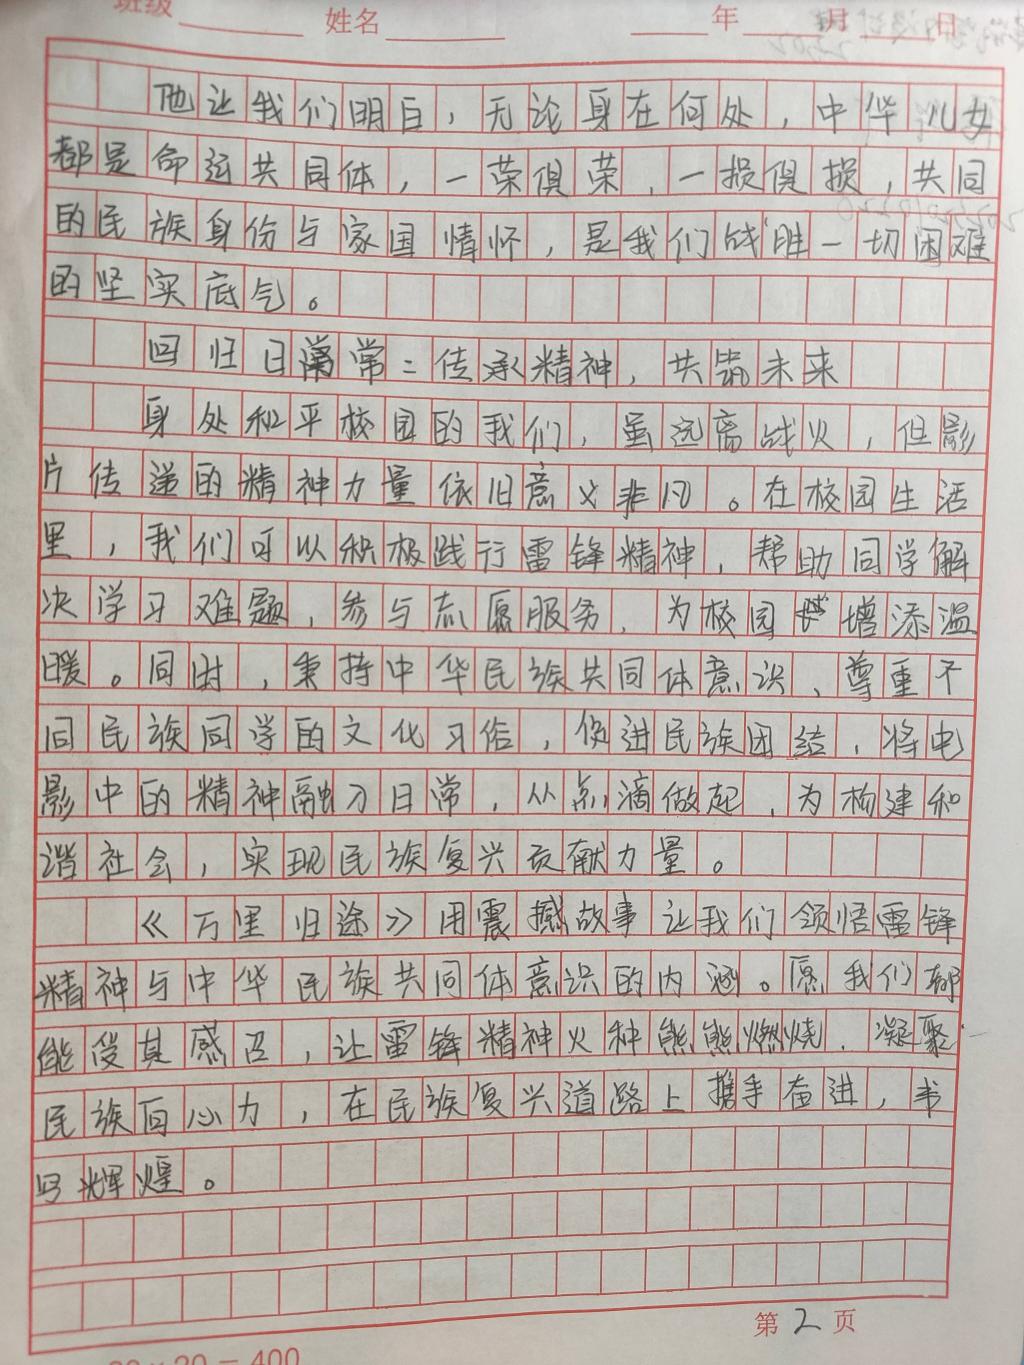 班级 姓名 年 月 日
他让我们明白，无论身在何处，中华儿女
都是命运共同体，一荣俱荣，一损俱损，共同
的民族身份与家国情怀，是我们战胜一切困难
的坚实底气。
回归日常：传承精神，共筑未来
身处和平校园的我们，虽远离战火，但影
片传递的精神力量依旧意义非凡。在校园生活
里，我们可以积极践行雷锋精神，帮助同学解
决学习难题，参与志愿服务，为校园增添温
暖。同时，秉持中华民族共同体意识、尊重不
同民族同学的文化习俗，促进民族团结，将电
影中的精神融入日常，从点滴做起，为构建和
谐社会，实现民族复兴贡献力量。
《万里归途》用震撼故事让我们领悟雷锋
精神与中华民族共同体意识的内涵。愿我们都
能受其感召，让雷锋精神火种熊熊燃烧，凝聚
民族向心力，在民族复兴道路上携手奋进，书
写辉煌。
第2页
20×20=400